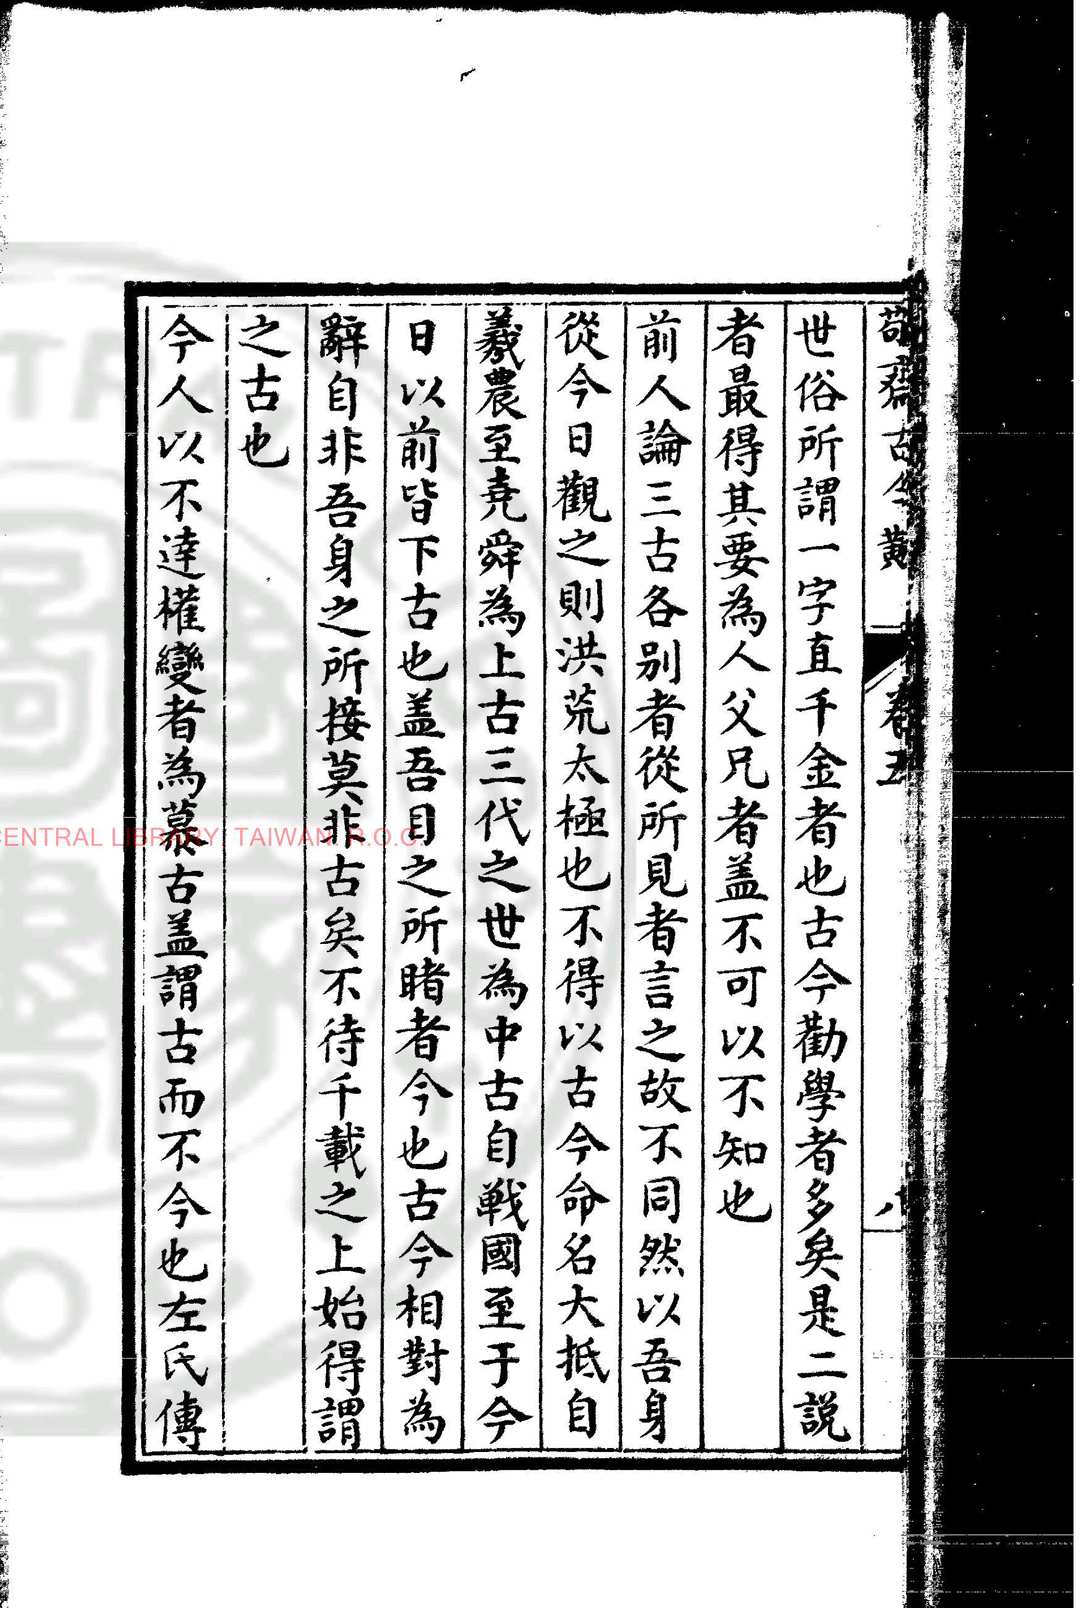 敬齋古今黈 卷五
世俗所謂一字直千金者也古今勸學者多矣是二説
者最得其要為人父兄者盖不可以不知也
前人論三古各别者從所見者言之故不同然以吾身
從今日觀之則洪荒太極也不得以古今命名大抵自
羲農至堯舜為上古三代之世為中古自戰國至于今
日以前皆下古也盖吾目之所睹者今也古今相對為
辭自非吾身之所接莫非古矣不待千載之上始得謂
之古也
今人以不逹權變者為慕古盖謂古而不今也左氏傳
CENTRAL LIBRARY, TAIWAN R.O.C.